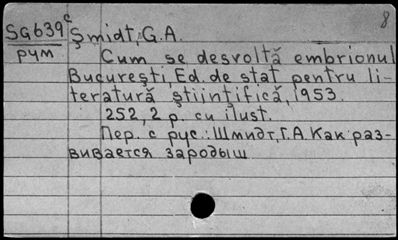 8
SG639c Şmidt, G.A.
рум Cum se desvoltă embrionul
Bucureşti, Ed. de stat pentru li-
teratură ştiinţifică, 1953.
252, 2 p. cu ilust.
Пер. с рус.: Шмидт, Г.А. Как раз-
вивается зародыш